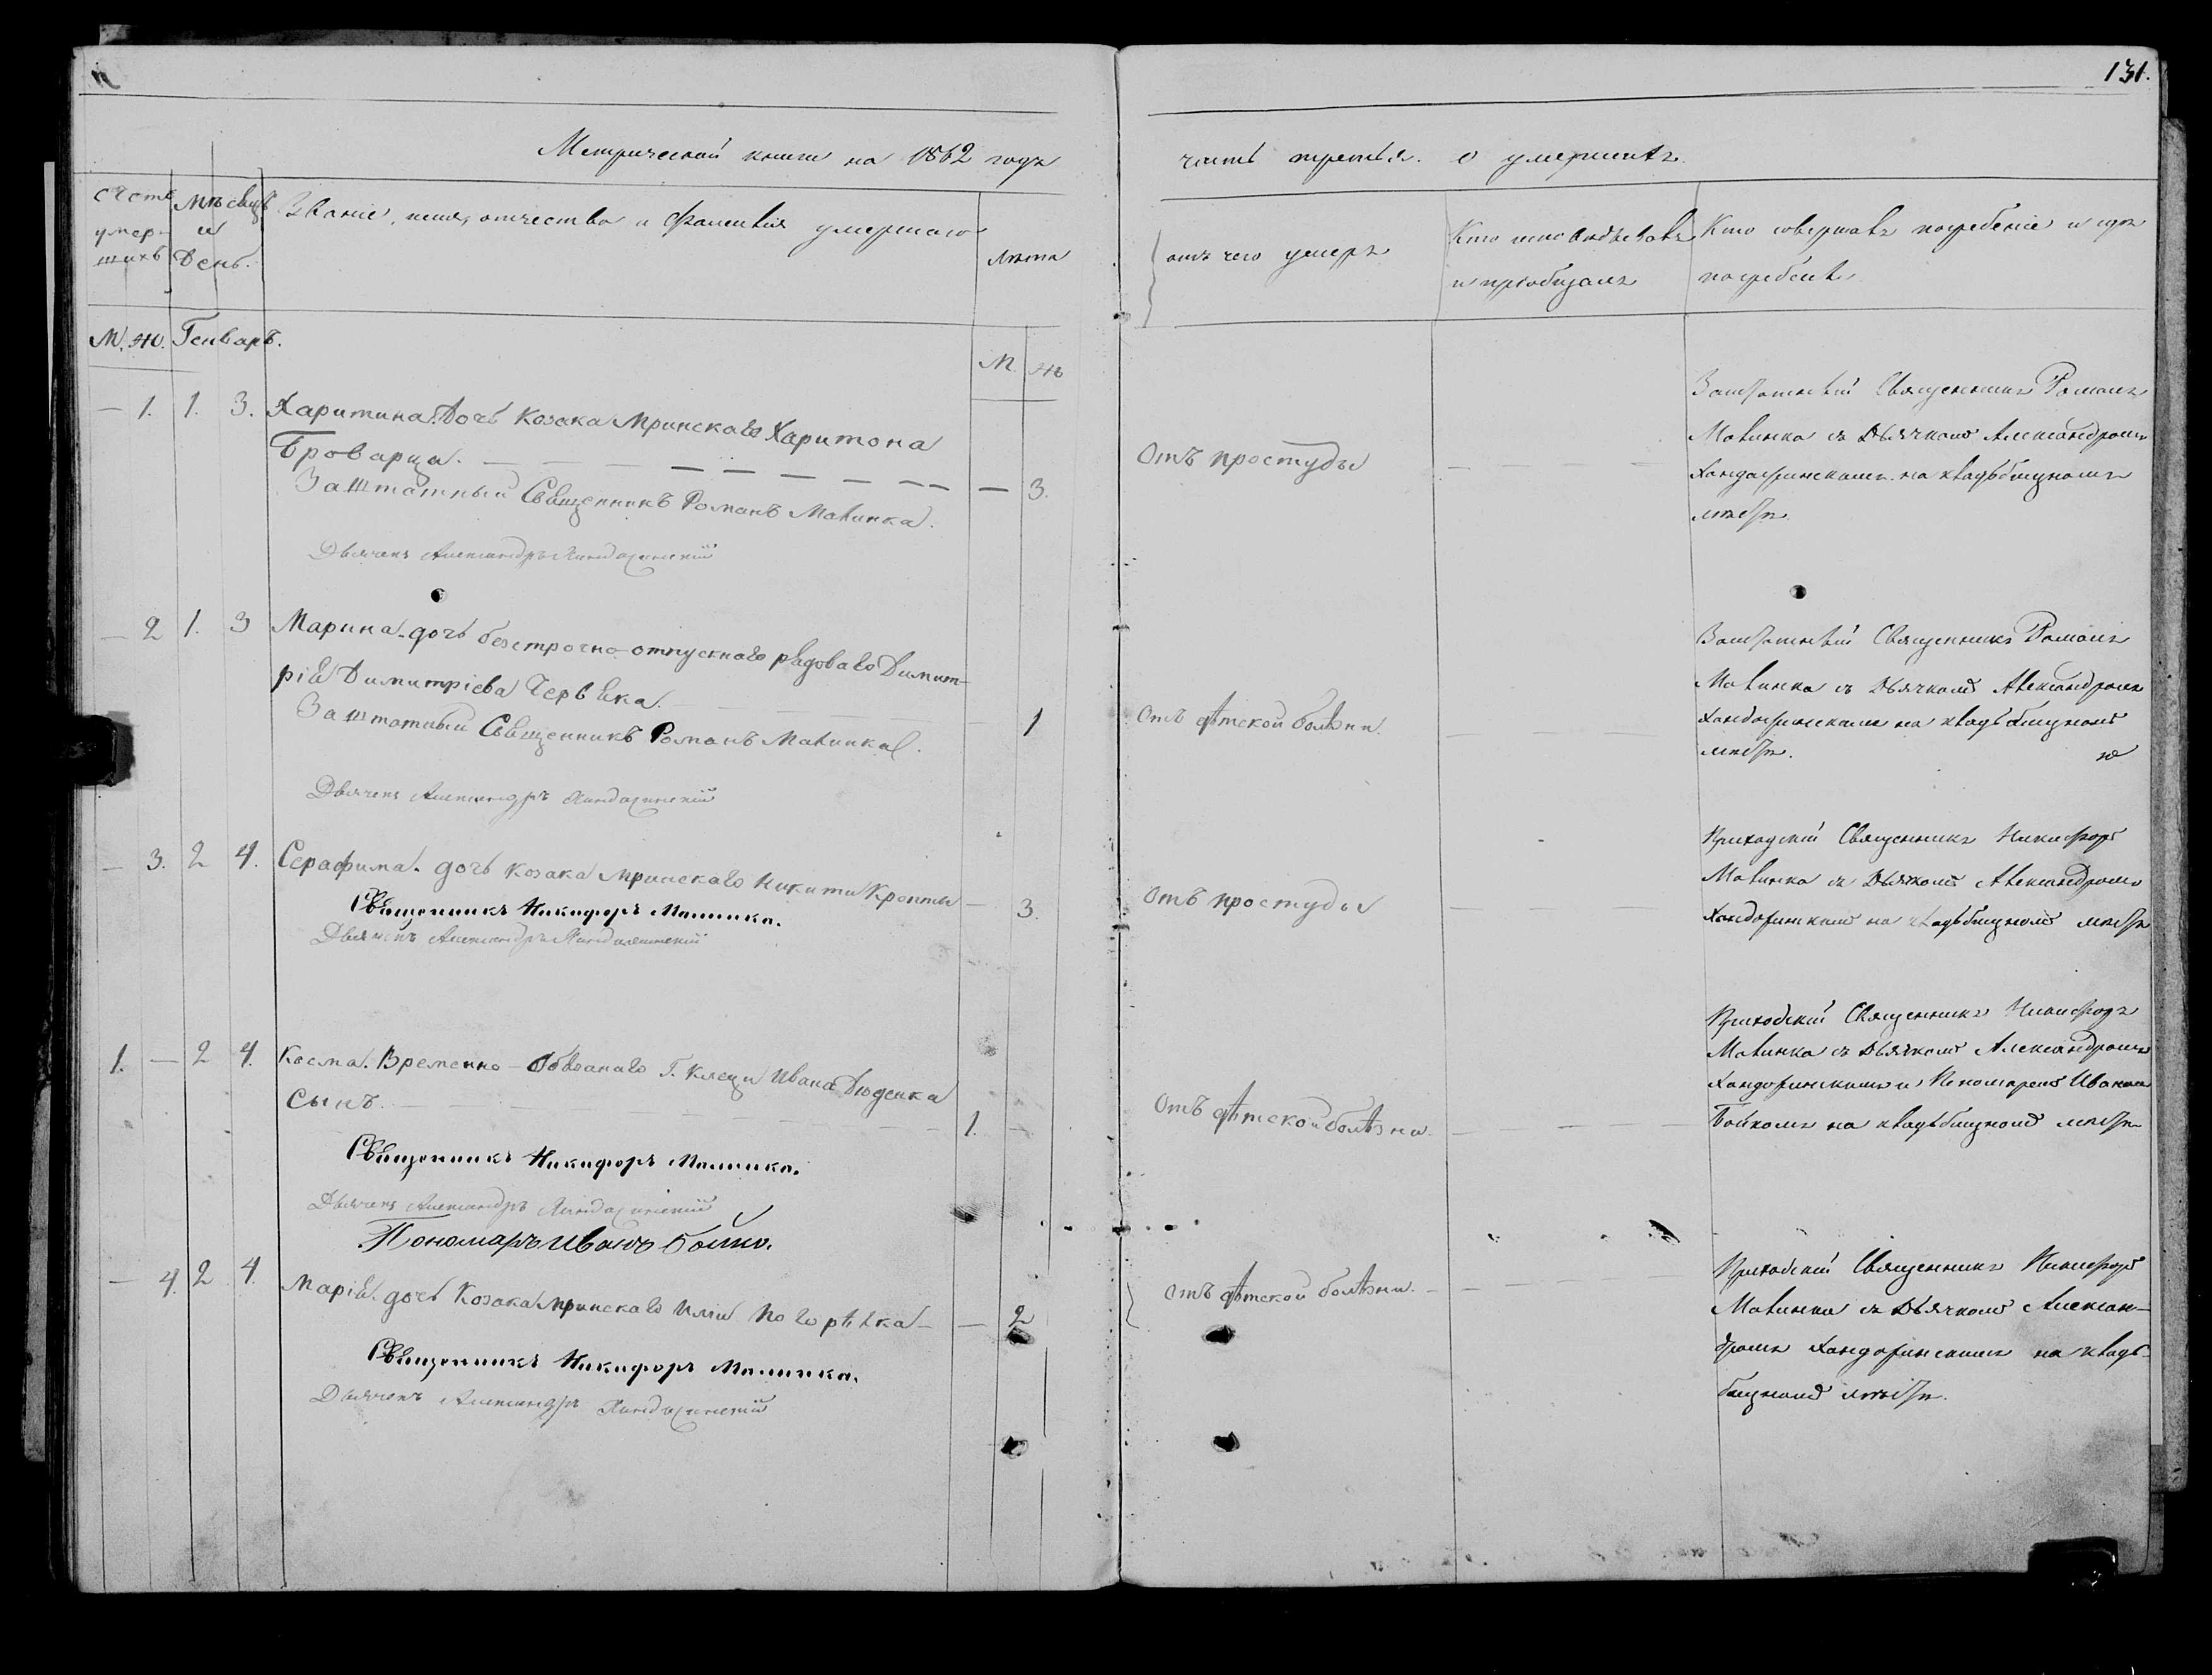 131.
Метрической книги на 1862 годъ
часть третья. о умершихъ.
Счетъ умер- шихъ
Мѣсяцъ и День.
Званіе, имя, отчество и фамилія умершаго
Лѣта
отъ чего умеръ
Кто исповѣдывалъ и пріобщалъ
Кто совершалъ погребеніе и гдѣ погребенъ
М. Ж. Генваръ.
М. Ж
1. 1. 3. Харитина. Дочь Козака Мринскаго Харитона
Броварца. 3.
Заштатный Священникъ Романъ Малинка.
Дьячекъ Александръ Хандожинскій
Отъ простуды
Заштатный Священникъ Романъ
Малинка съ Дьячкомъ Александромъ
Хандожинскимъ на кладбищномъ
мѣстѣ.
2 1. 3 Марина. дочь безсрочно-отпускнаго рядоваго Димит-
рія Димитріева Червяка. 1
Заштатный Священникъ Романъ Малинка.
Дьячекъ Александръ Хандожинскій
Отъ дѣтской болѣзни.
Заштатный Священникъ Романъ
Малинка съ Дьячкомъ Александромъ
Хандожинскимъ на кладьбищномъ
мѣстѣ.
3. 2 4. Серафима. дочь козака Мринскаго Никиты Кропты 3.
Священникъ Никифоръ Малинка.
Дьячекъ Александръ Хандожинскій
Отъ простуды
Приходскій Священникъ Никифоръ
Малинка съ Дьячкомъ Александромъ
Хандожинскимъ на кладьбищномъ мѣстѣ
1. — 2 4. Косма. Временно-Обязанаго Г. Клеци Ивана Дюденка
Сынъ. 1.
Священникъ Никифоръ Малинка.
Дьячекъ Александръ Хандожинскій
Пономаръ Иванъ Бойко.
Отъ дѣтской болѣзни.
Приходскій Священникъ Никифоръ
Малинка съ Дьячкомъ Александромъ
Хандожинскимъ и Пономаремъ Иваномъ
Бойкомъ на кладьбищномъ мѣстѣ
— 4. 2 4. Марія. дочь Козака Мринскаго Иліи Погорѣлка — 2
Священникъ Никифоръ Малинка.
Дьячекъ Александръ Хандожинскій
Отъ дѣтской болѣзни.
Приходскій Священникъ Никифоръ
Малинка съ Дьячкомъ Алексан-
дромъ Хандожинскимъ на кладь-
бищномъ мѣстѣ.